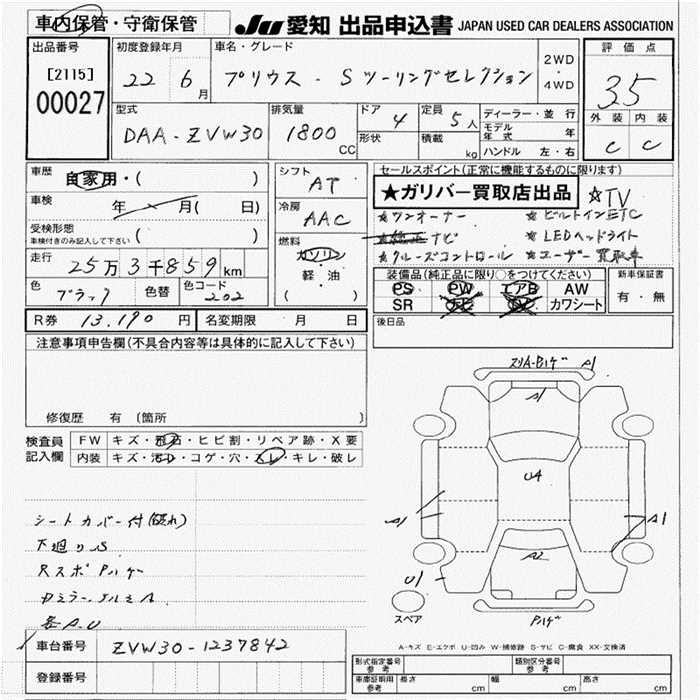 車内保管・守衛保管 JU 愛知 出品申込書 JAPAN USED CAR DEALERS ASSOCIATION
出品番号 初度登録年月 車名・グレード 2WD ・ 4WD 評価点
[2115] 22 6月 プリウス - Sツーリングセレクション 35
00027
型式 排気量 ドア 4 定員 5人 ディーラー・並行 外装 内装
DAA-ZVW30 1800CC 形状 積載 kg モデル年式 年 C C
ハンドル 左・右
車歴 自家用・( )
シフト AT
セールスポイント(正常に機能するものに限ります)
★ガリバー買取店出品 ☆TV
車検 年 月( 日)
冷房 AAC
★ワンオーナー ★ビルトインETC
受検形態 ( )
車検付きのみ記入して下さい
★純正ナビ ★LEDヘッドライト
燃料 ガソリン・軽・油 ( )
★クルーズコントロール ★ユーザー買取車
走行 25万3千859km
装備品(純正品に限り○をつけてください) 新車保証書
色 ブラック 色替 色コード 202
PS PW エアB AW 有・無
SR ナビ カワシート
R券 13,190円 名変期限 月 日
後日品
注意事項申告欄(不具合内容等は具体的に記入して下さい)
修復歴 有 (箇所 )
検査員記入欄 FW キズ・飛石・ヒビ割・リペア跡・X要
内装 キズ・汚レ・コゲ・穴・スレ・キレ・破レ
A1
A1
U4
A1 A1
A2
U1
スペア
シートカバー付(破れ)
下廻りS
各A.U
A-キズ E-エクボ U-凹み W-補修跡 S-サビ C-腐食 XX-交換済
車台番号 ZVW30-1237842
登録番号
形式指定番号 参考 類別区分番号 参考
車庫証明用 参考 長さ cm 幅 cm 高さ cm